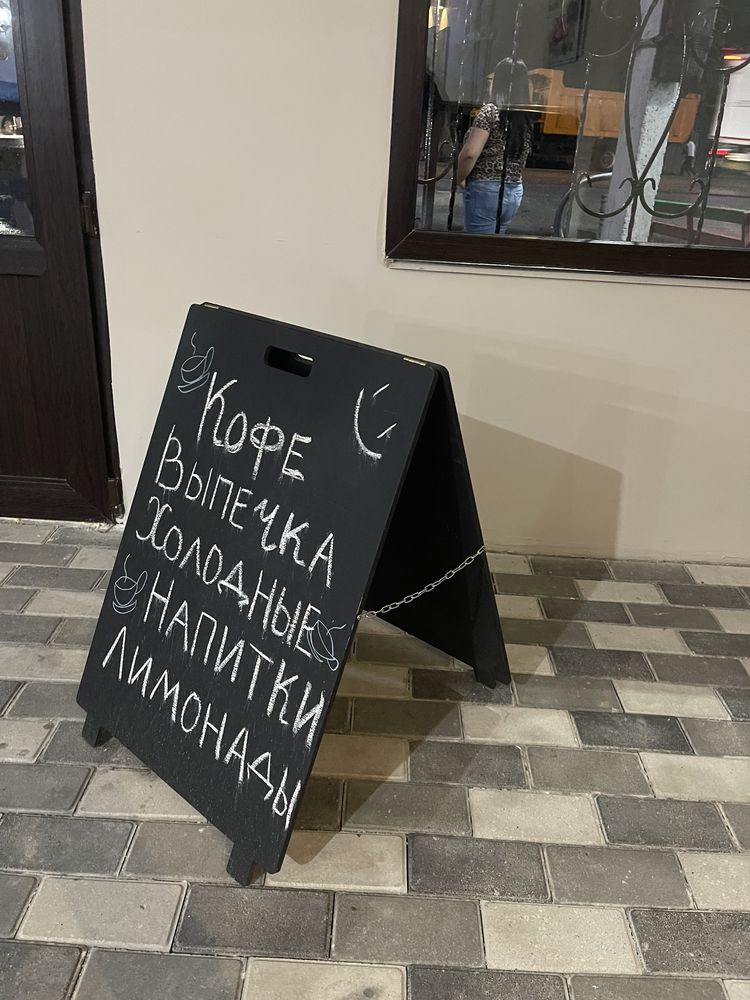 Кофе
Выпечка
Холодные
напитки
лимонады